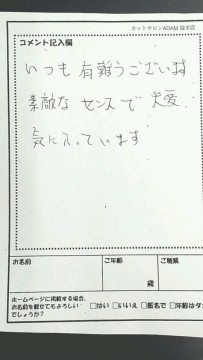 カットサロンADAM 取手店
コメント記入欄
いつも有難うございます
素敵なセンスで
気に入っています
お名前
ご年齢
ご職業
歳
ホームページに掲載する場合、
お名前を載せてもよろしい
でしょうか？
□はい □いいえ □匿名で □年齢はダ